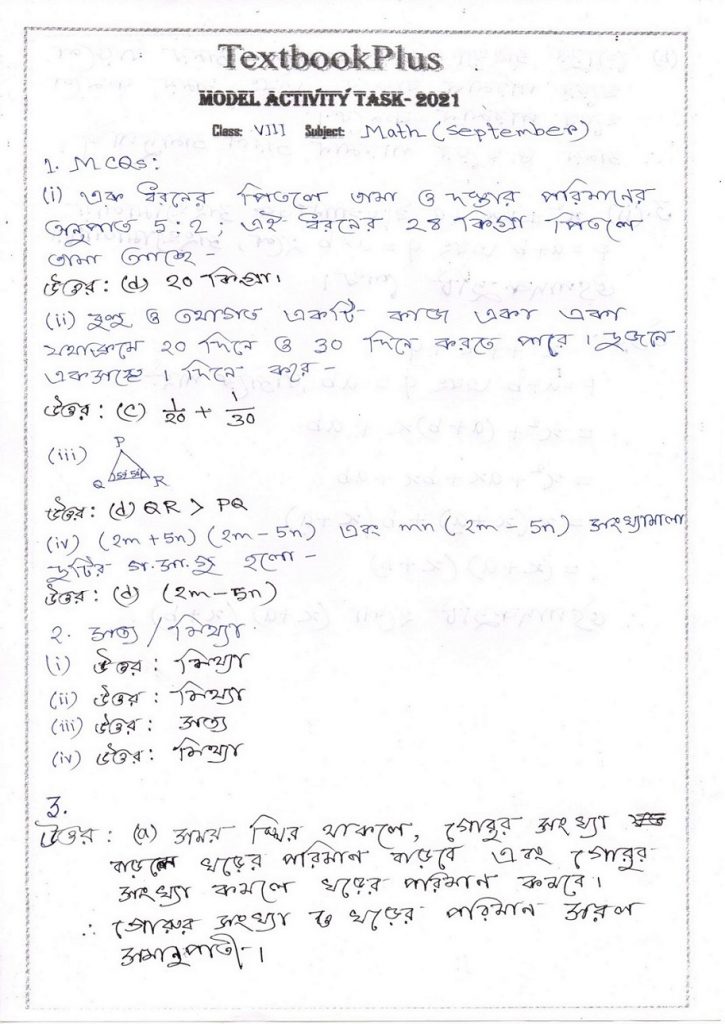 TextbookPlus
MODEL ACTIVITY TASK- 2021
Class: VIII Subject: Math (September)
1. MCQs:
(i) এক ধরনের পিতলে তামা ও দস্তার পরিমানের
অনুপাত 5:2; এই ধরনের ২৪ কিগ্রা পিতলে
তামা আছে -
উত্তর: (d) ২০ কিগ্রা।
(ii) বুলু ও তথাগত একটি কাজ একা একা
যথাক্রমে ২০ দিনে ও 30 দিনে করতে পারে। দুজনে
একসঙ্গে 1 দিনে করে -
উত্তর: (c) 1/20 + 1/30
(iii) P
Q R
উত্তর: (d) QR > PQ
(iv) (2m+5n) (2m-5n) এবং mn (2m-5n) সংখ্যামালা
দুটির গ.সা.গু হলো -
উত্তর: (d) (2m-5n)
২. সত্য / মিথ্যা
(i) উত্তর: মিথ্যা
(ii) উত্তর: মিথ্যা
(iii) উত্তর: সত্য
(iv) উত্তর: মিথ্যা
3.
উত্তর: (a) সময় স্থির থাকলে, গোরুর সংখ্যা
বাড়লে খড়ের পরিমান বাড়বে এবং গোরুর
সংখ্যা কমলে খড়ের পরিমান কমবে।
∴ গোরুর সংখ্যা ও খড়ের পরিমান সরল
সমানুপাতী।